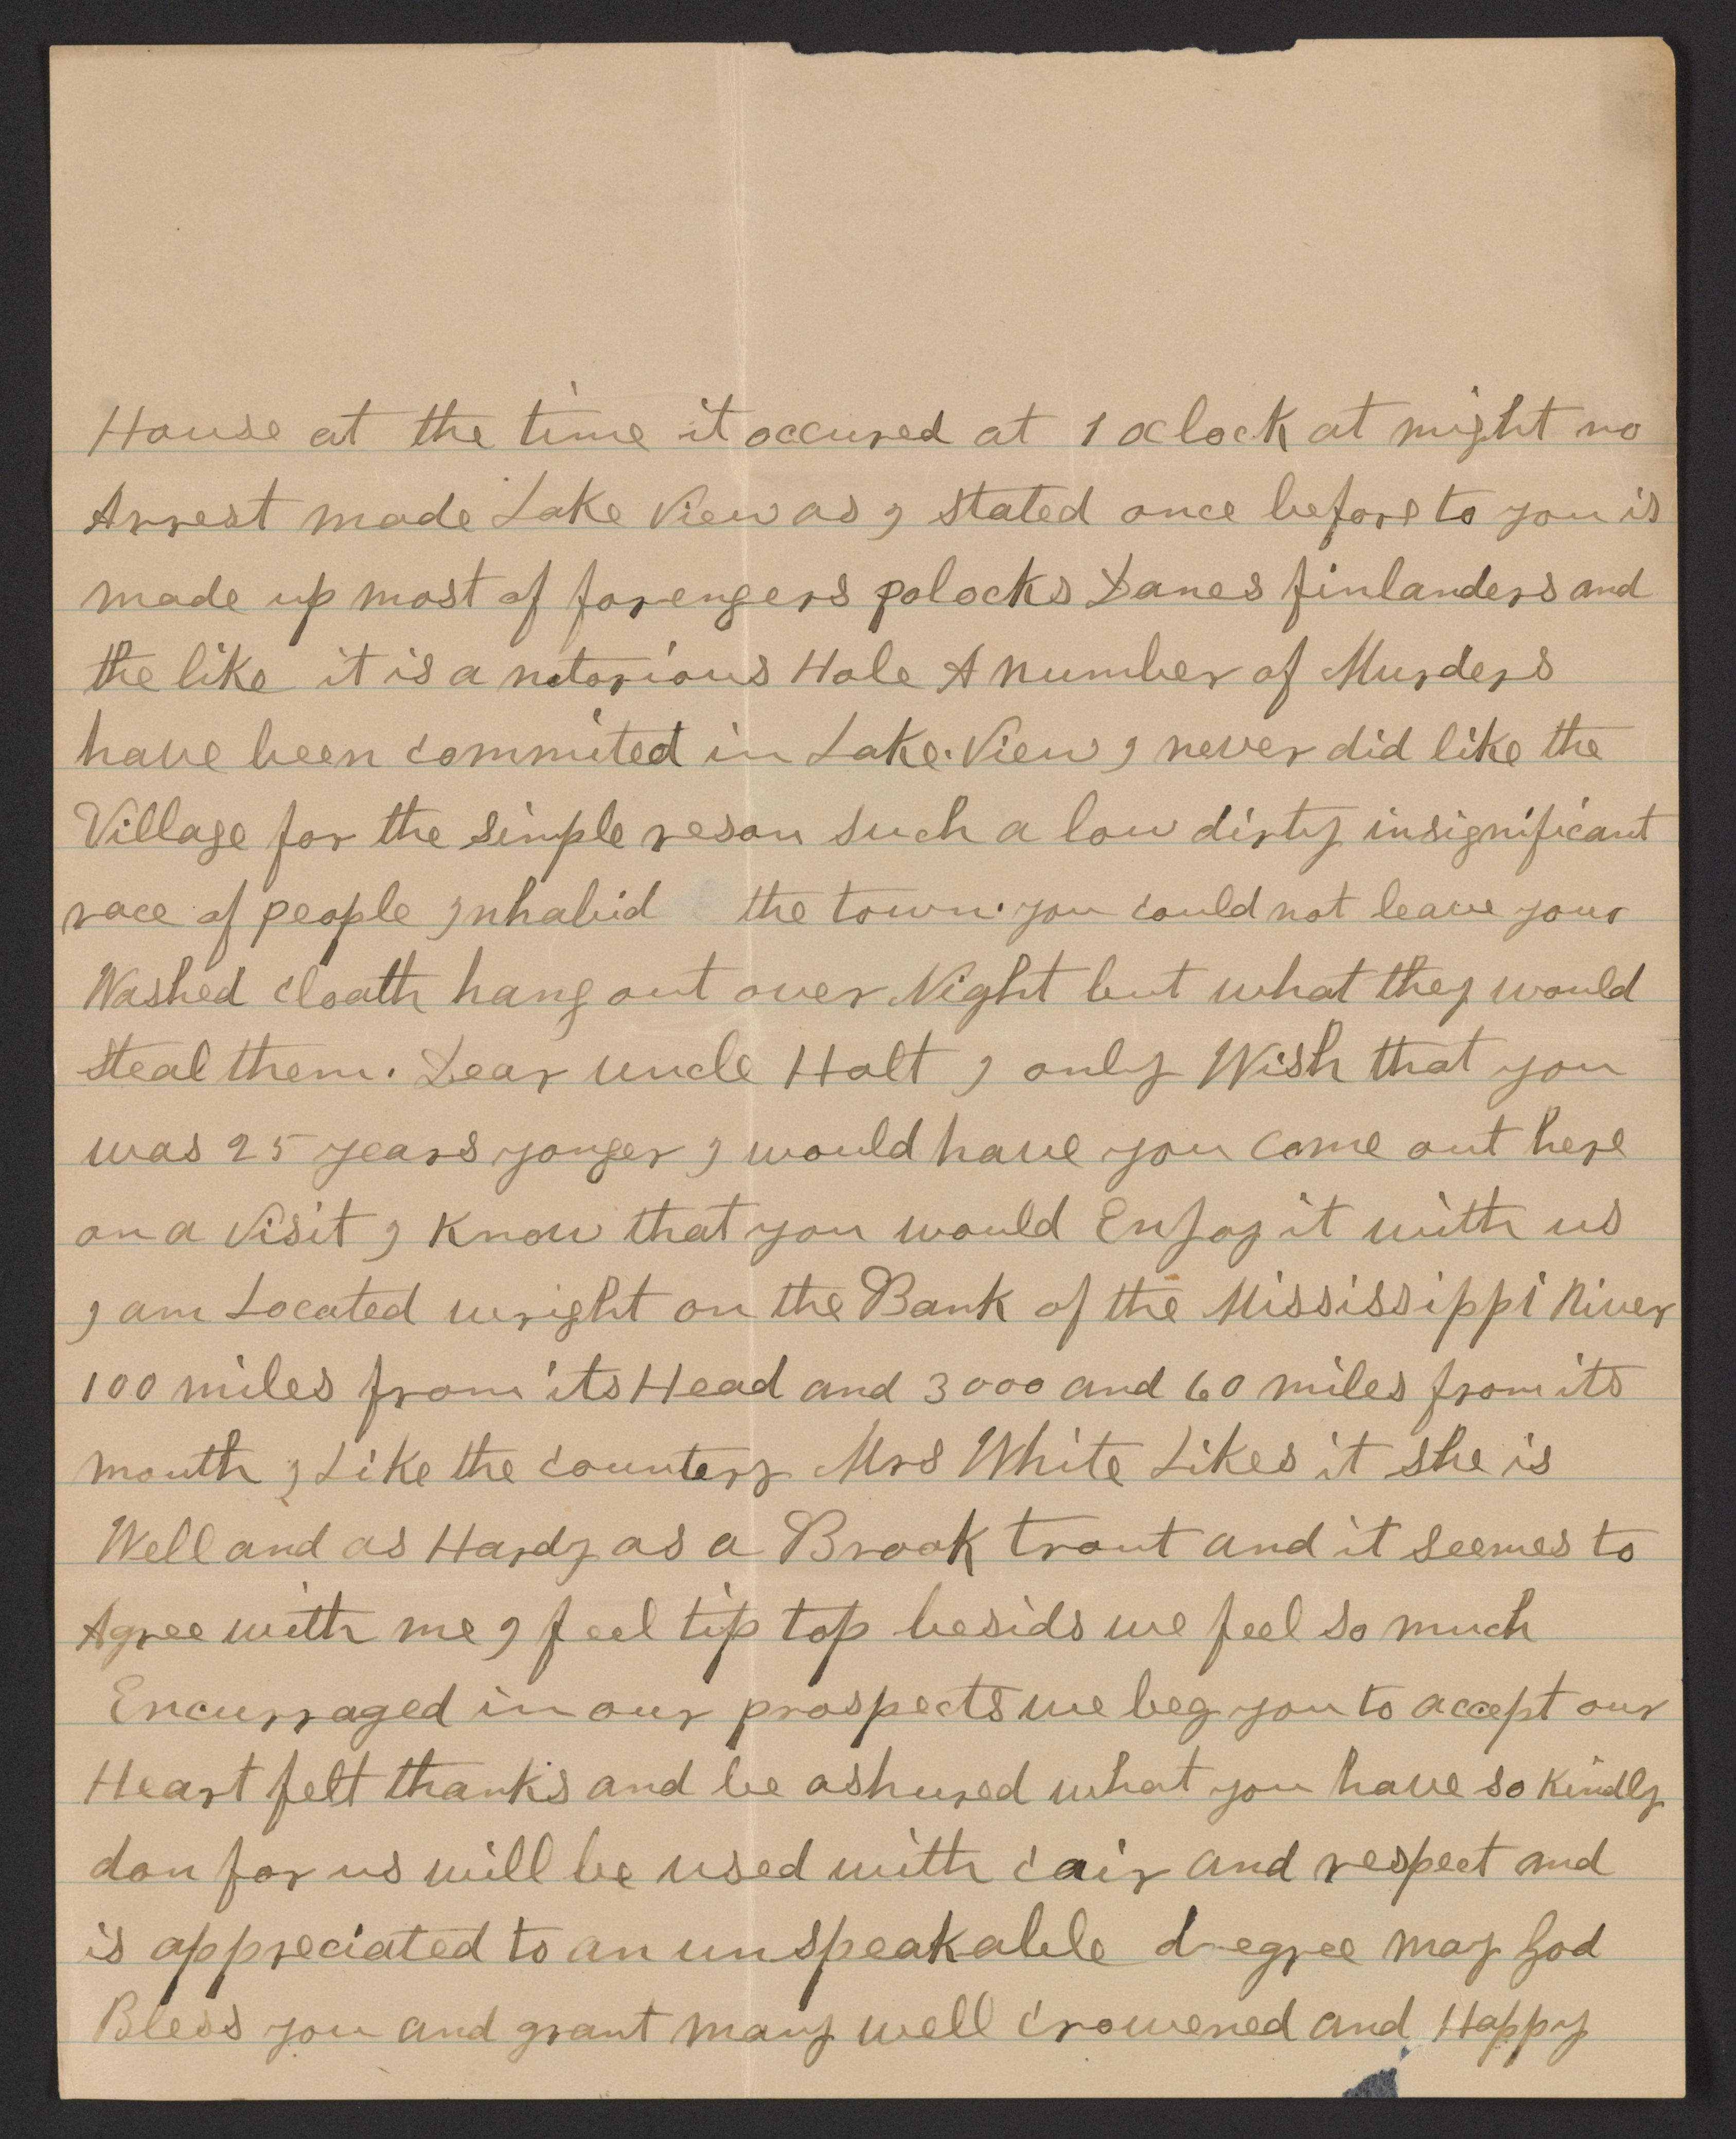 House at the time it occured at 1 oclock at night no
Arrest made Lake View as I stated once before to you is
made up most of forengers polocks Danes finlanders and
the like it is a notorious Hole A number of Murders
have been commited in Lake. View I never did like the
Village for the simple reson such a low dirty insignificant
race of people Inhabid the town. you could not leave your
Washed cloath hang out over Night but what they would
steal them. Dear uncle Holt I only Wish that you
was 25 years yonger I would have you come out here
on a Visit I know that you would Enjoy it with us
I am Located wright on the Bank of the Mississippi River
100 miles from its Head and 3000 and 60 miles from its
mouth I Like the countery Mrs White Likes it she is
Well and as Hardy as a Brook trout and it seemes to
Agree with me I feel tip top besids we feel so much
Encurraged in our prospects we beg you to accept our
Heart felt thanks and be ashured what you have so kindly
don for us will be used with cair and respect and
is appreciated to an unspeakable degree may God
Bless you and grant many well crowened and Happy